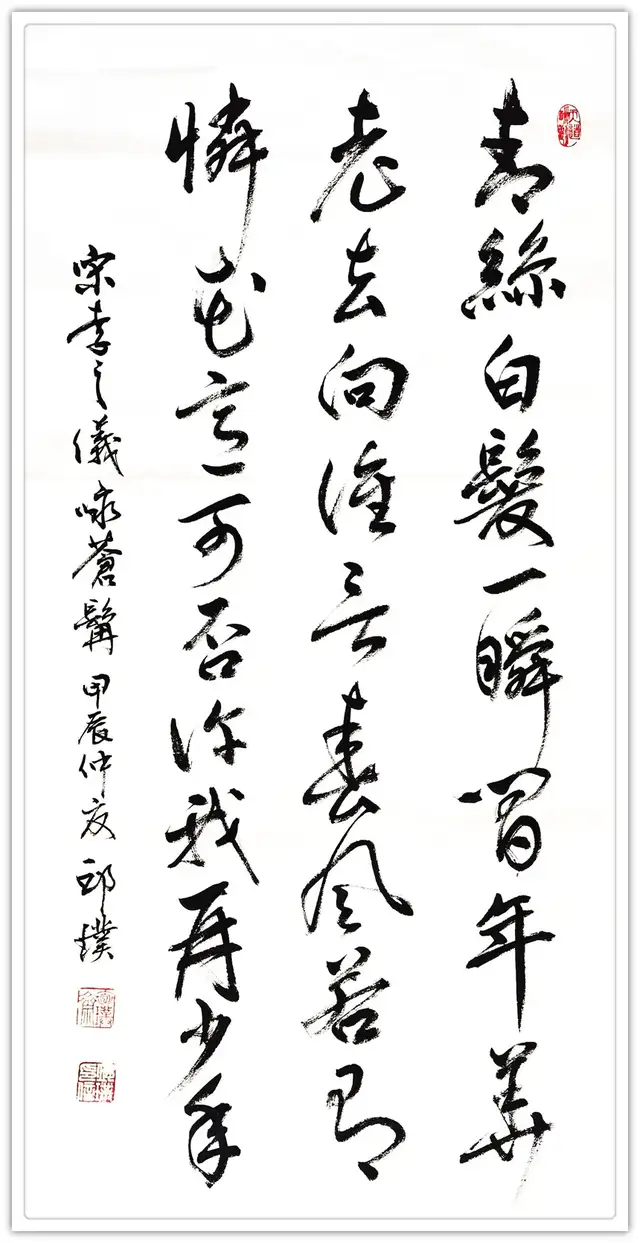 青絲白髮一瞬間年華
老去向誰言春風若有
憐花意可否許我再少年
宋李之儀咏蒼 甲辰仲夏 邱璞